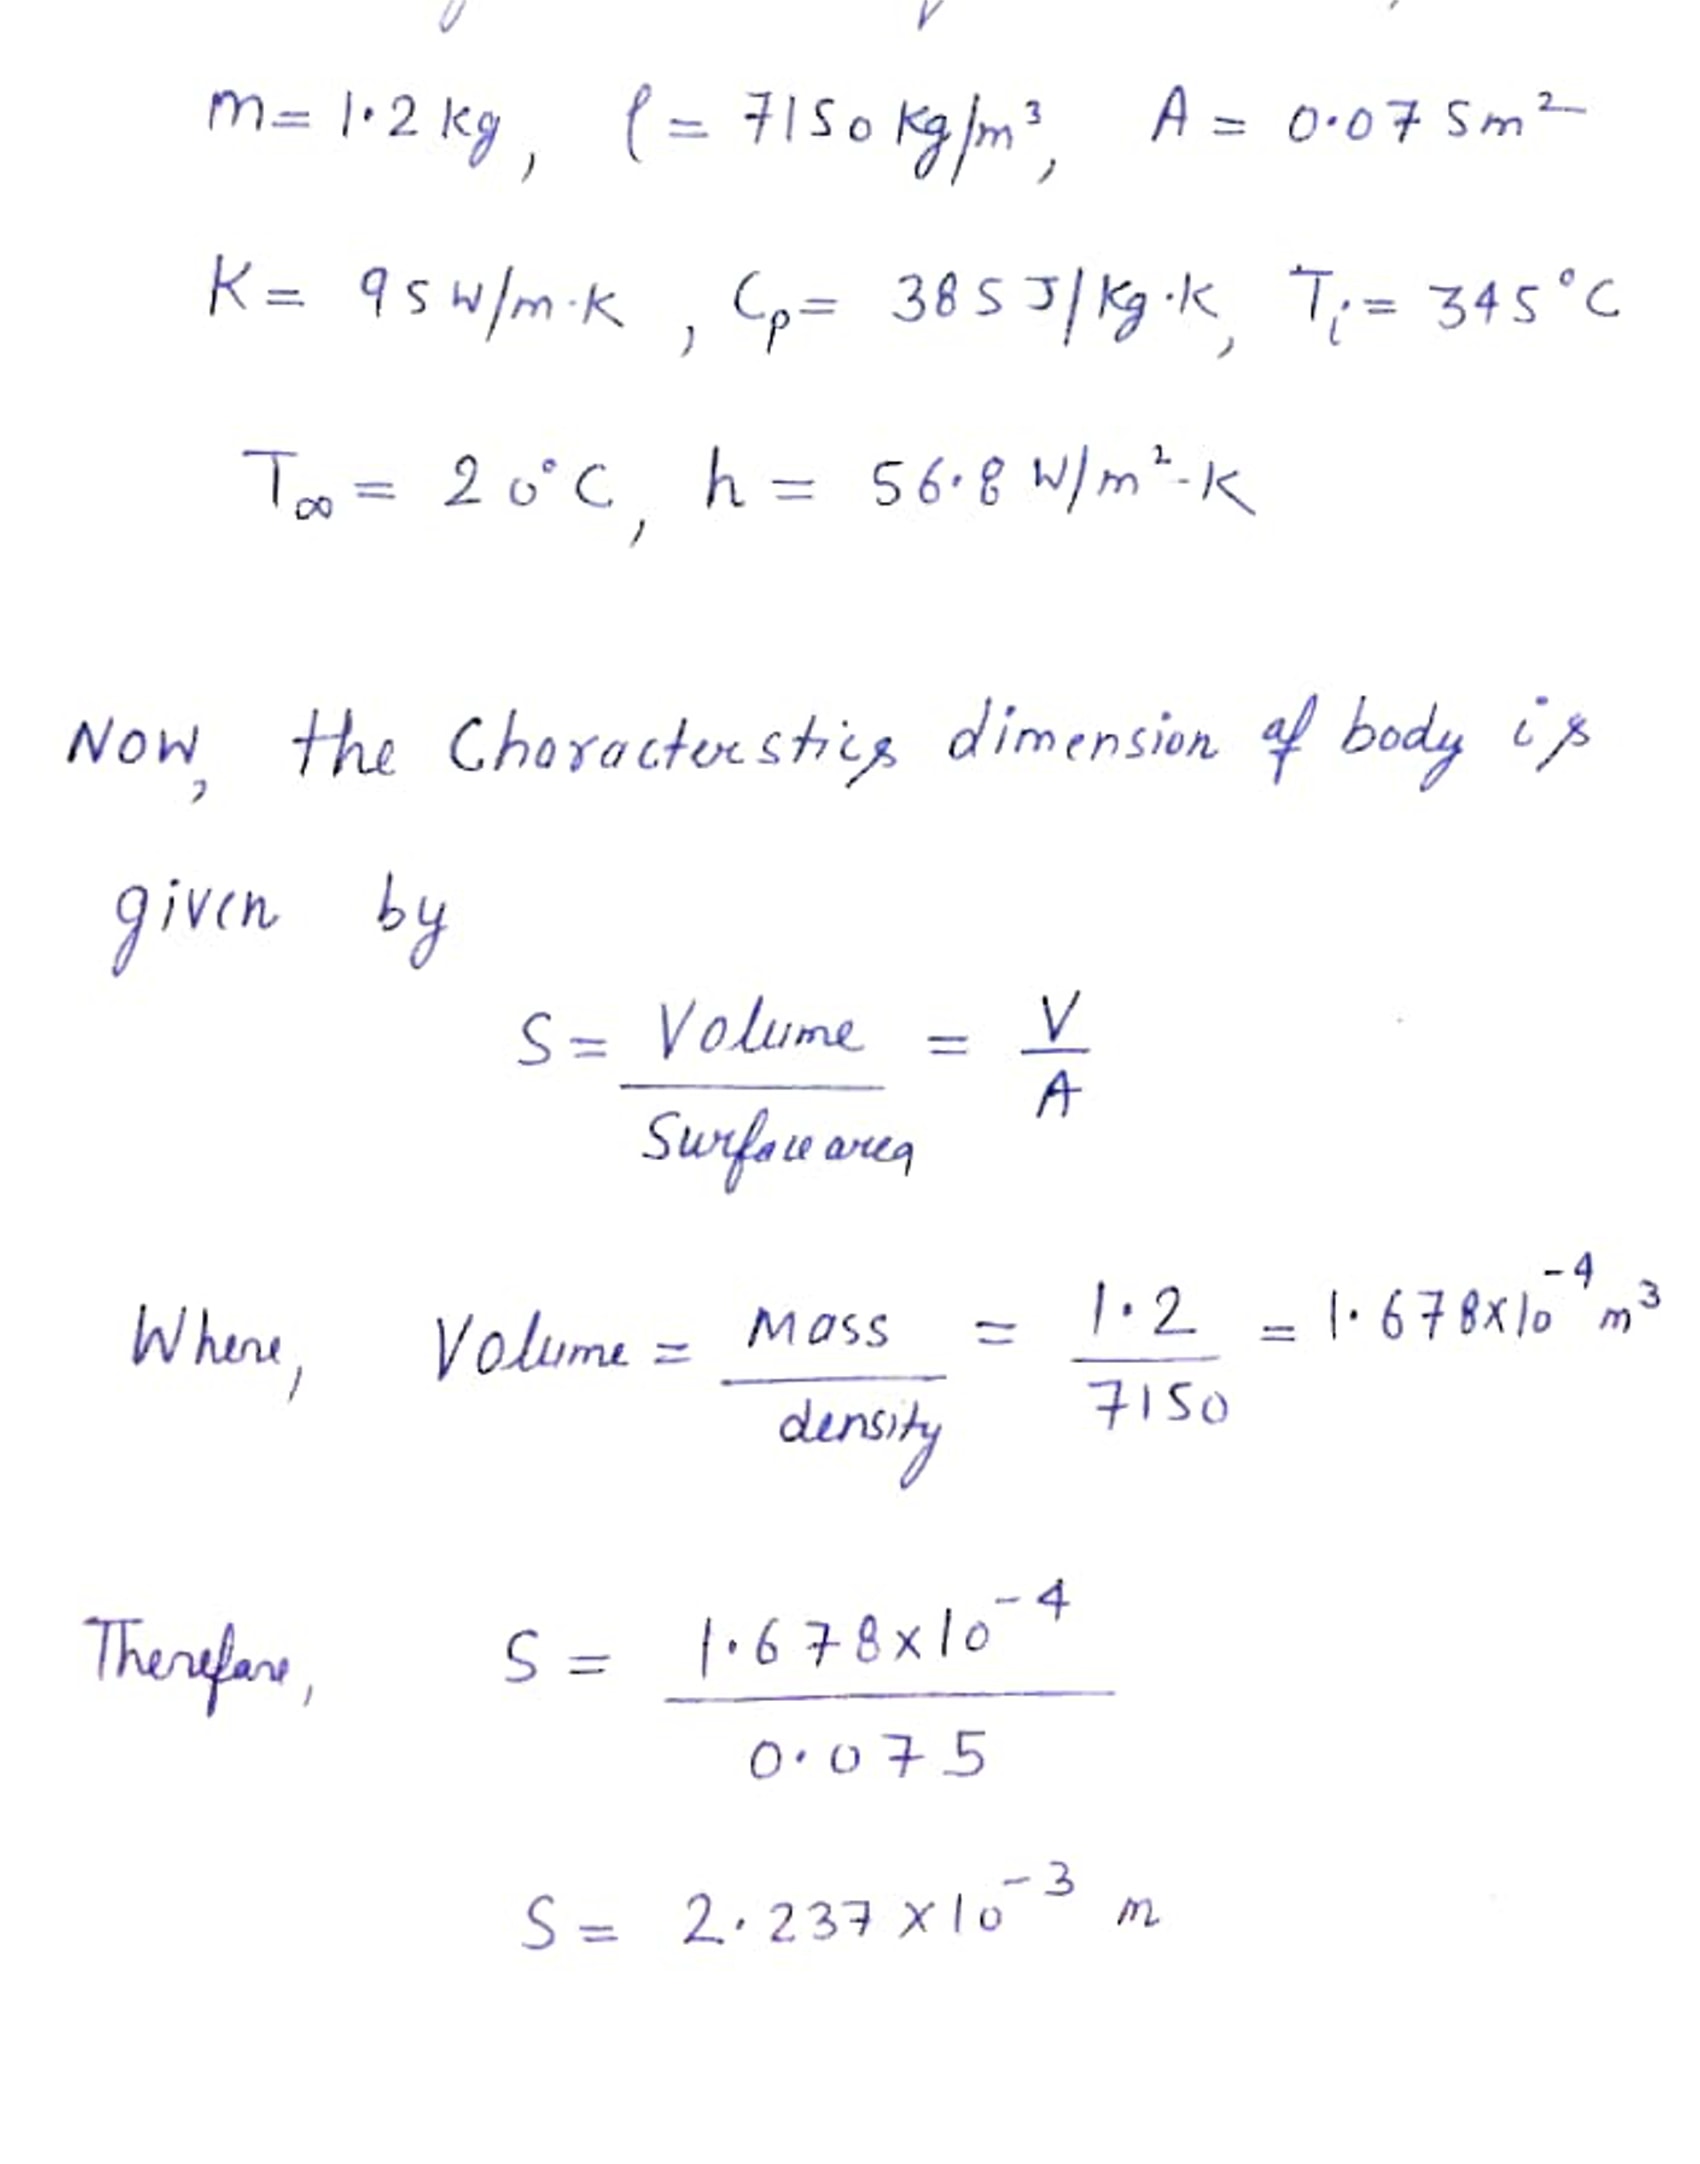 m= 1.2 kg, ρ = 7150 kg/m³, A = 0.075m²
K= 95 W/m·K, Cp= 385 J/kg·K, Ti= 345°C
T∞= 20°C, h = 56.8 W/m²-K
Now, the Characterstics dimension of body is
given by
S= Volume / Surface area = V / A
Where, Volume = Mass / density = 1.2 / 7150 = 1.678x10⁻⁴ m³
Therefore, S = 1.678x10⁻⁴ / 0.075
S= 2.237x10⁻³ m